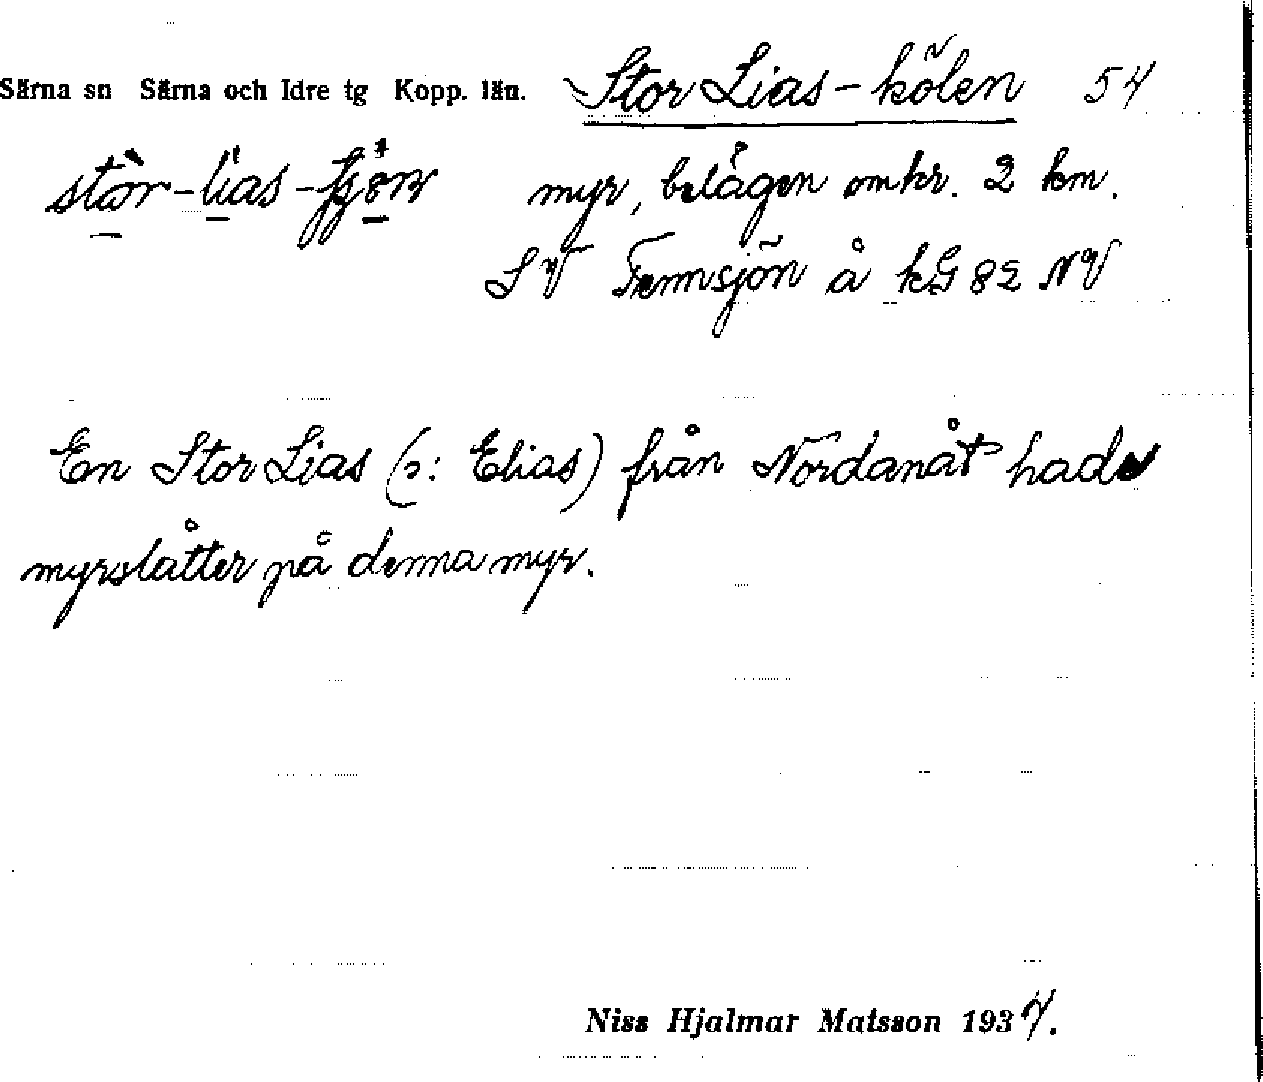 Särna sn Särna och Idre tg Kopp. län. Stor Lias-kölen 54
myr, belägen omkr. 2 km.
SV Femsjön å kG 82 NV
En Stor Lias (ɔ: Elias) från Nordanåt hade
myrslåtter på denna myr.
Niss Hjalmar Matsson 1934.